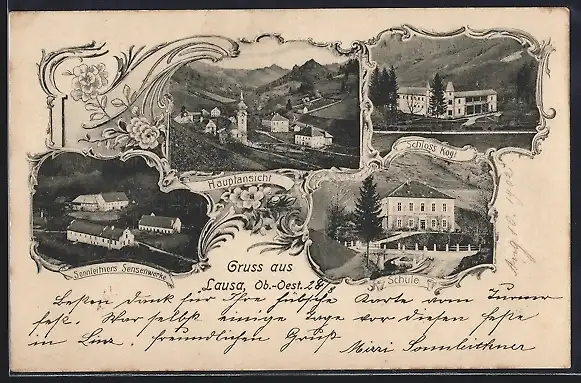 Hauptansicht
Schloss Kogl
Sonnleitners Sensenwerke
Schule
Gruss aus
Lausa, Ob.-Oest. 28/8
Besten Dank für Ihre hübsche Karte vom Turner
fest. War selbst einige Tage vor diesem Feste
in Linz. Freundlichen Gruß
Mizzi Sonnleithner